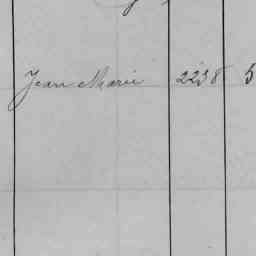 Jean Marie 2238 5